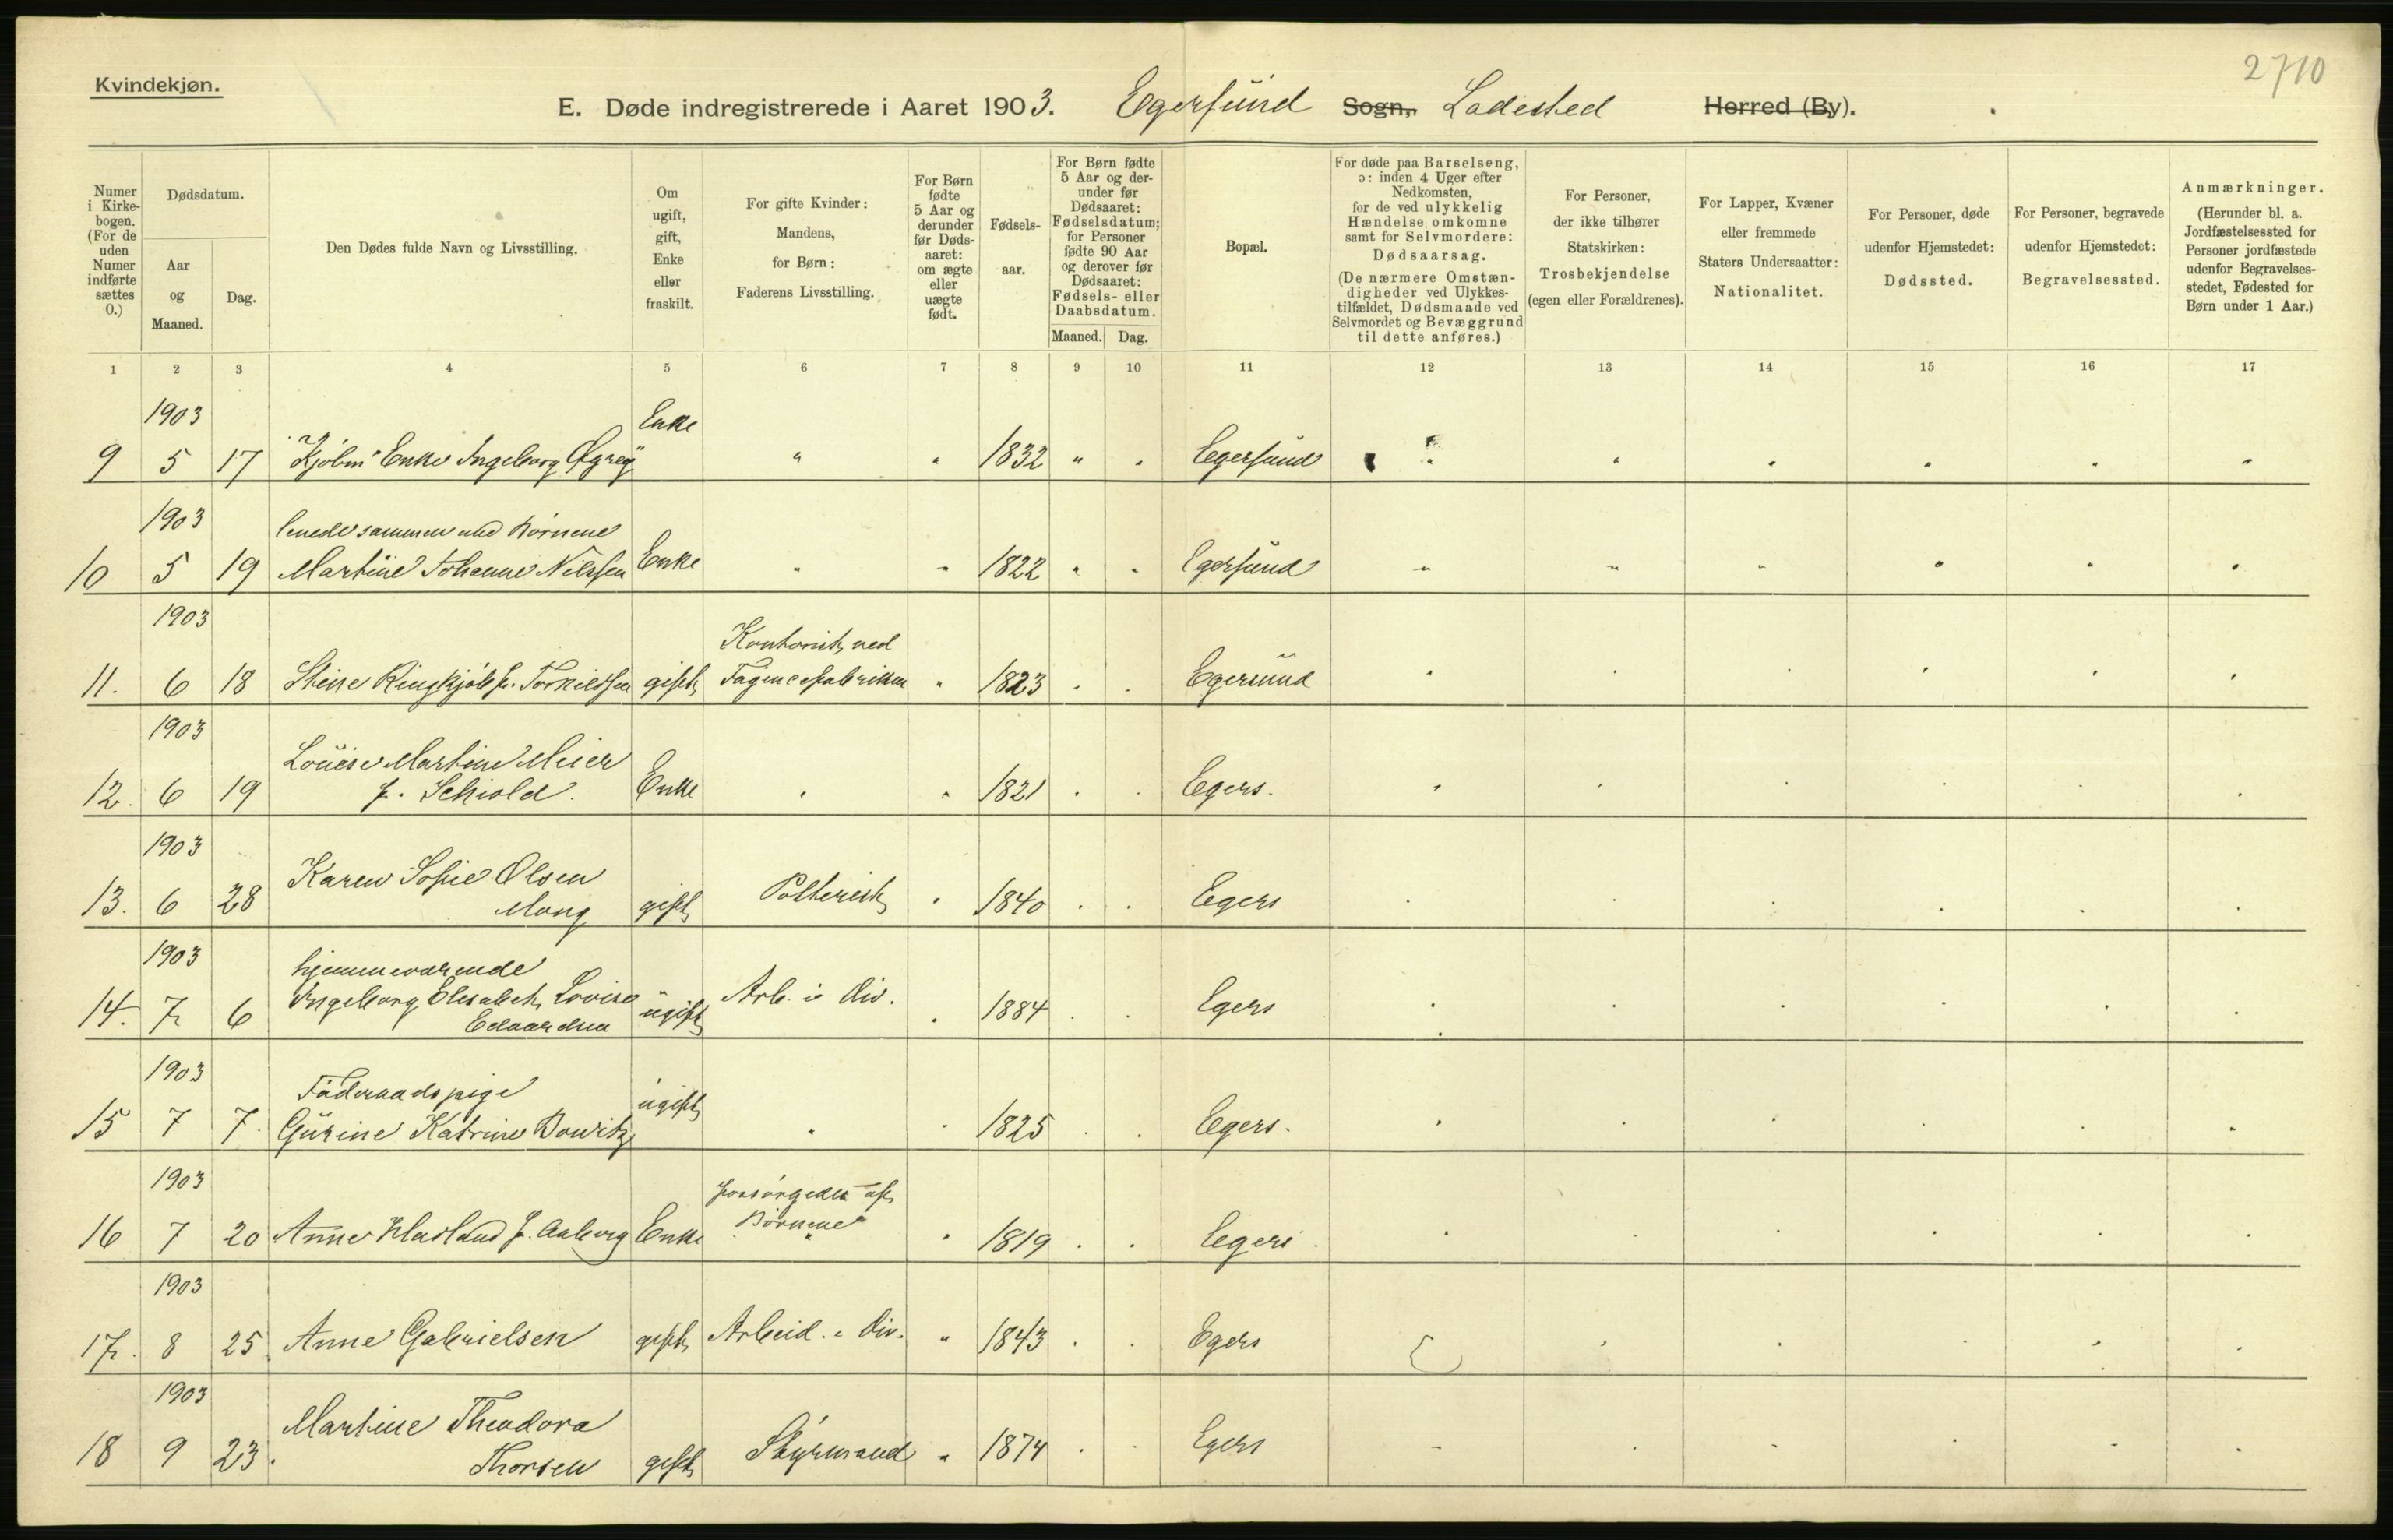 2710
Kvindekjøn.
E. Døde indregistrerede i Aaret 1903. Egersund Sogn, Ladested Herred (By).
Numer i Kirkebogen. (For de uden Numer indførte sættes 0.)
Dødsdatum.
Aar og Maaned.
Dag.
Den Dødes fulde Navn og Livsstilling.
Om ugift, gift, Enke eller fraskilt.
For gifte Kvinder: Mandens, for Børn: Faderens Livsstilling.
For Børn fødte 5 Aar og derunder før Dødsaaret: om ægte eller uægte født.
Fødselsaar.
For Børn fødte 5 Aar og derunder før Dødsaaret: Fødselsdatum; for Personer fødte 90 Aar og derover før Dødsaaret: Fødsels- eller Daabsdatum.
Maaned. Dag.
Bopæl.
For døde paa Barselseng, ɔ: inden 4 Uger efter Nedkomsten, for de ved ulykkelig Hændelse omkomne samt for Selvmordere: Dødsaarsag.
(De nærmere Omstændigheder ved Ulykkestilfældet, Dødsmaade ved Selvmordet og Bevæggrund til dette anføres.)
For Personer, der ikke tilhører Statskirken: Trosbekjendelse (egen eller Forældrenes).
For Lapper, Kvæner eller fremmede Staters Undersaatter: Nationalitet.
For Personer, døde udenfor Hjemstedet: Dødssted.
For Personer, begravede udenfor Hjemstedet: Begravelsessted.
Anmærkninger.
(Herunder bl. a. Jordfæstelsessted for Personer jordfæstede udenfor Begravelsesstedet, Fødested for Børn under 1 Aar.)
1 2 3 4 5 6 7 8 9 10 11 12 13 14 15 16 17
1903 Enke
9 5 17 Kjøbm Enke Ingeborg " " 1832 " " Egersund " " " " " "
1903 levede sammen med Børnene
10 5 19 Martine Johanne Nilssen Enke " " 1822 " " Egersund " " " " " "
1903 Kontorist, ved
11. 6 18 Stine Ringkjøb f. Torkildsen gift Fayancefabrikken " 1823 " " Egersund " " " " " "
1903 Louise Martine Meier
12. 6 19 f. Schiold. Enke " " 1821 " " Egers. " " " " " "
1903 Karen Sofie Olsen
13. 6 28 Mong gift Potterist " 1840 " " Egers
1903 hjemmeværende
Ingeborg Elisabeth Lovise
14. 7 6 Edvardsen ugift Arb. i div. " 1884 Egers
1903 Føderaadspige
15 7 7. Gurine Katrine Bowitz ugift " " 1825 Egers.
1903 forsørgedes af
16 7 20 Anne Hadland f. Aaberg Enke Børnene " 1819 Egers.
1903
17. 8 25 Anne Gabrielsen gift Arbeid. i div. " 1843 Egers
1903 Martine Theodora
18 9 23. Thorsen gift Styrmand " 1874 Egers